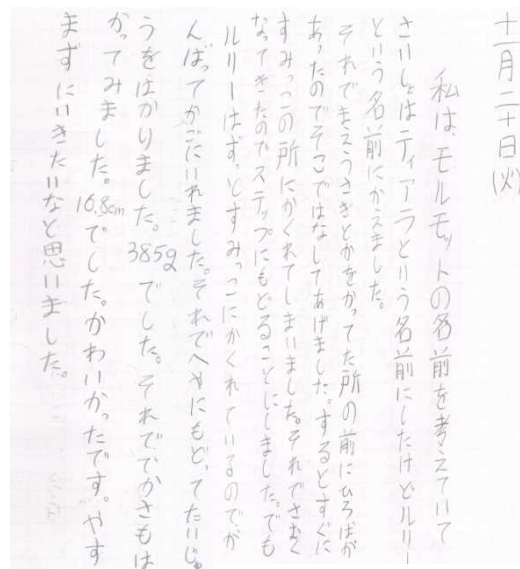 十一月二十日(火)
私は、モルモットの名前を考えていて
さいしょはティアラという名前にしたけどルリー
という名前にかえました。
それでまえうさぎとかをかってた所の前にひろばが
あったのでそこではなしてあげました。するとすぐに
すみっこの所にかくれてしまいました。それでさむく
なってきたのでステップにもどることにしました。でも
ルリーはずっとすみっこにかくれているのでが
んばってかごにいれました。それでへやにもどってたいじゅ
うをはかりました。385gでした。それででかさもは
かってみました。16.8cmでした。かわいかったです。やす
まずにいきたいなと思いました。